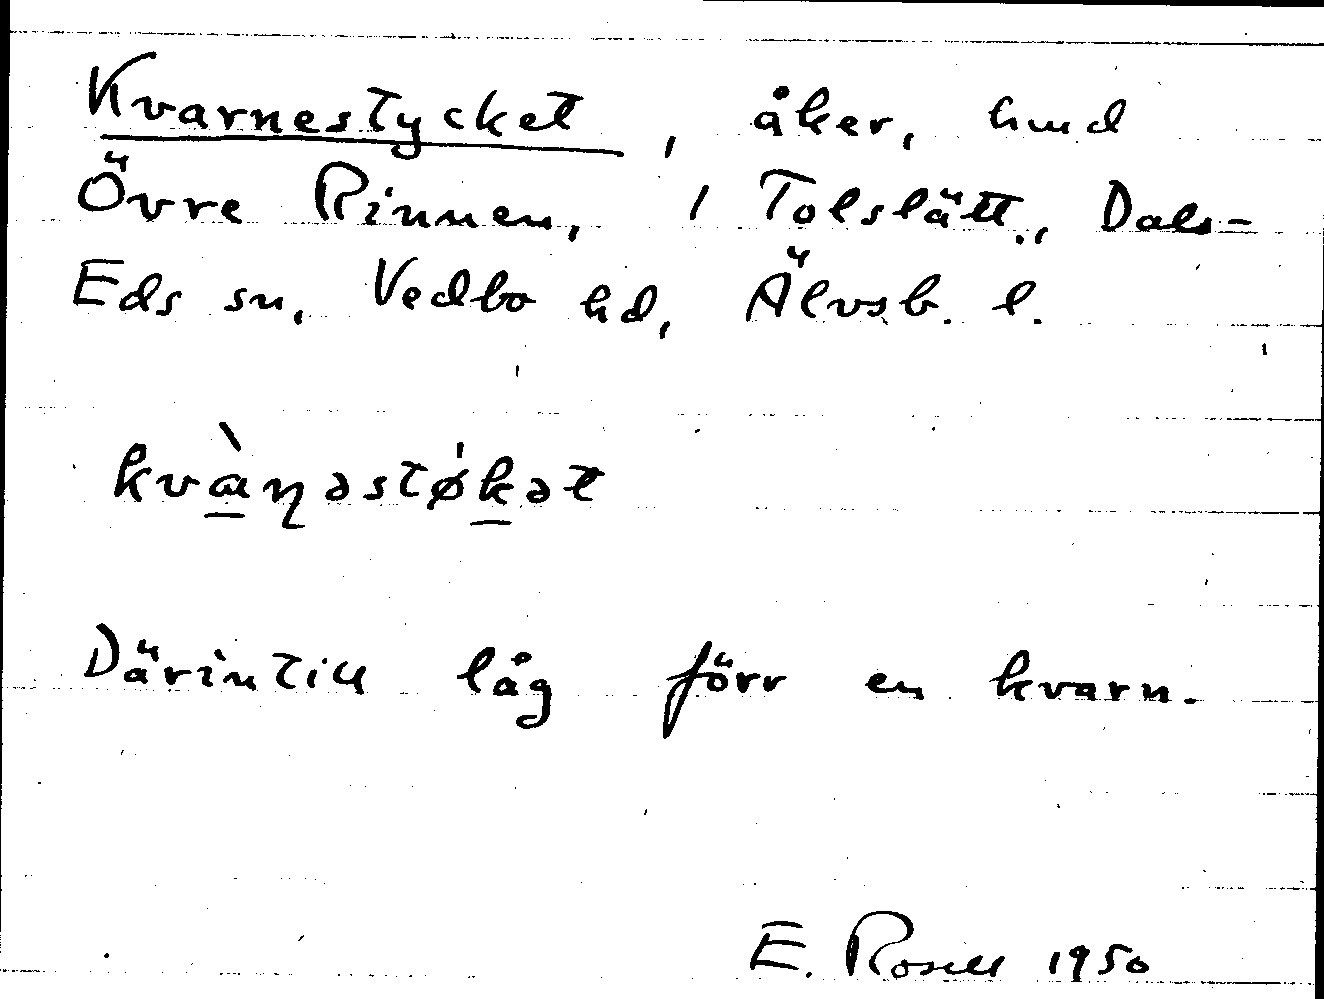 Kvarnestycket, åker, hmd
Övre Rinnen, 1 Tolslätt., Dals-
Eds sn, Vedbo hd, Älvsb. l.
kvàɳəstø̍kət
Därintill låg förr en kvarn.
E. Rosell 1950